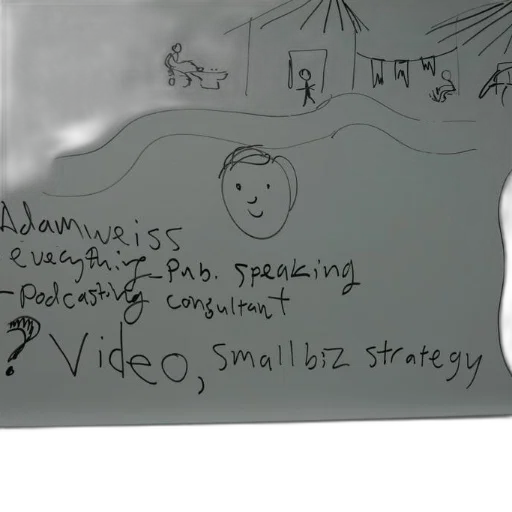 Adamweiss
everything - Pub. speaking
- Podcasting consultant
? Video, small biz strategy